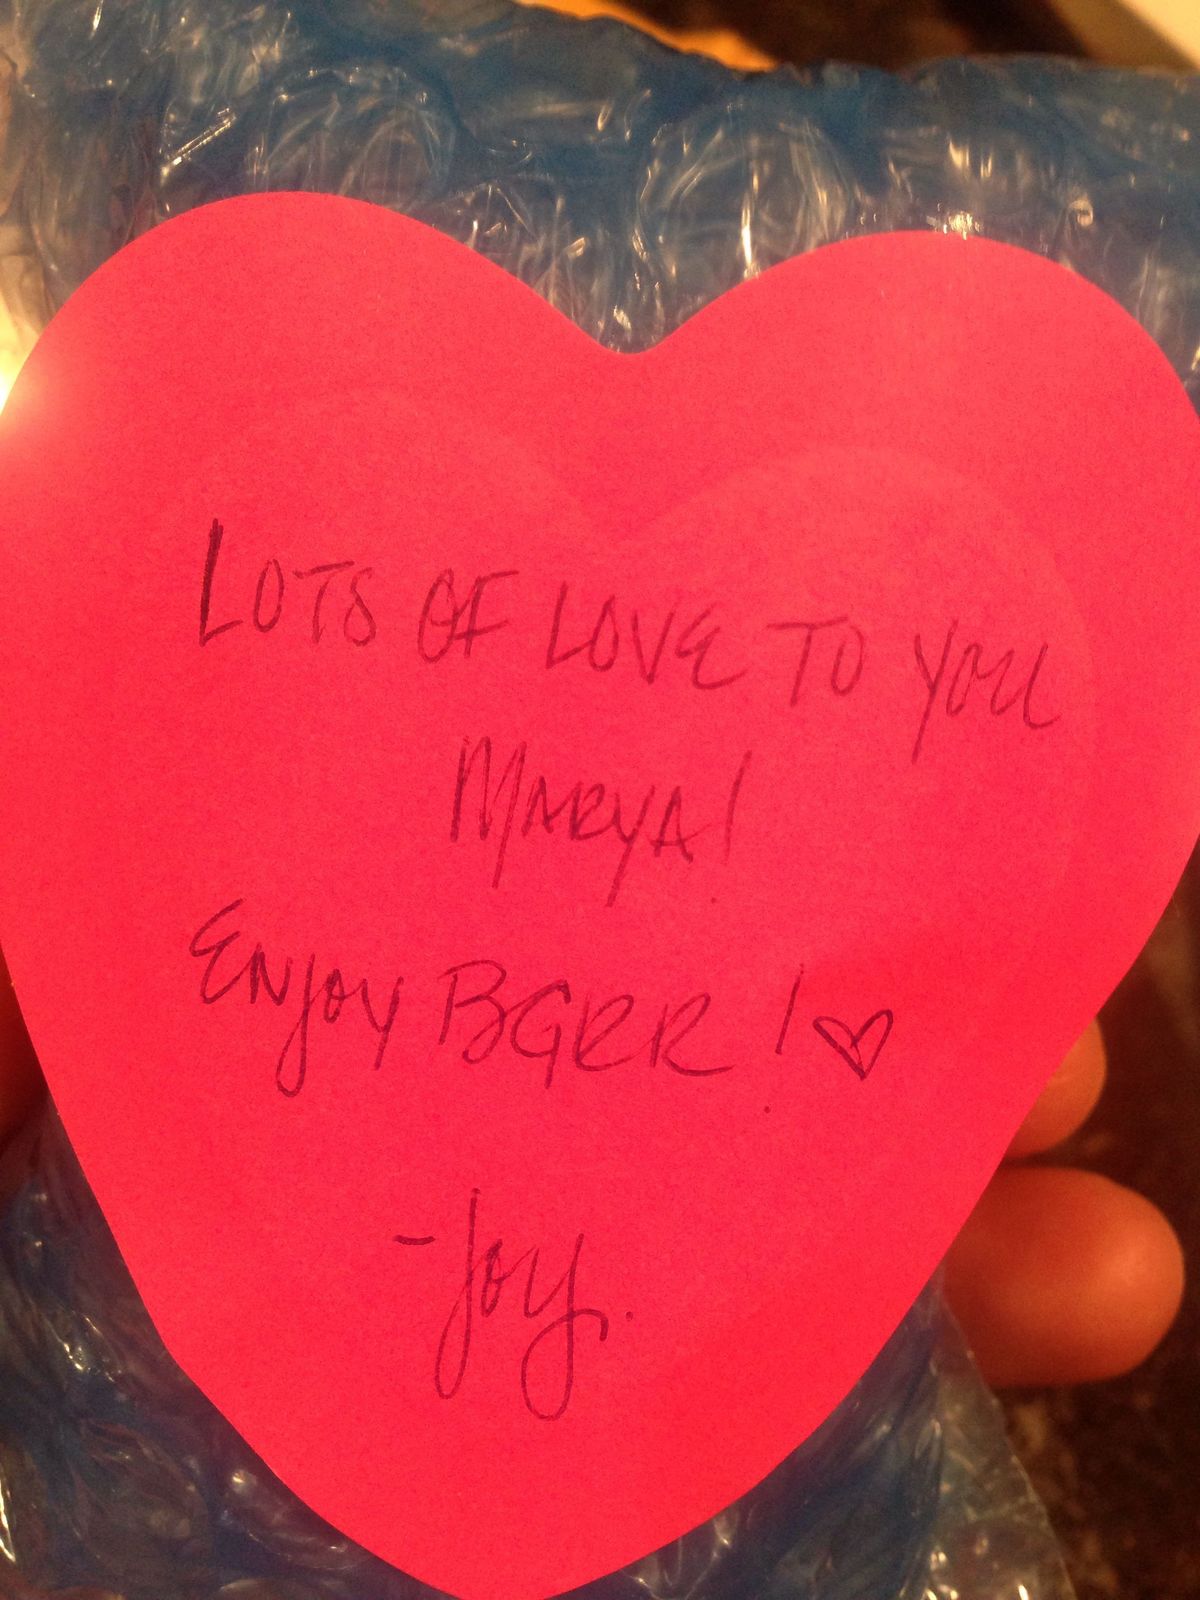 LOTS OF LOVE TO YOU
MARYA!
ENJOY BGRR! ♡
-Joy.